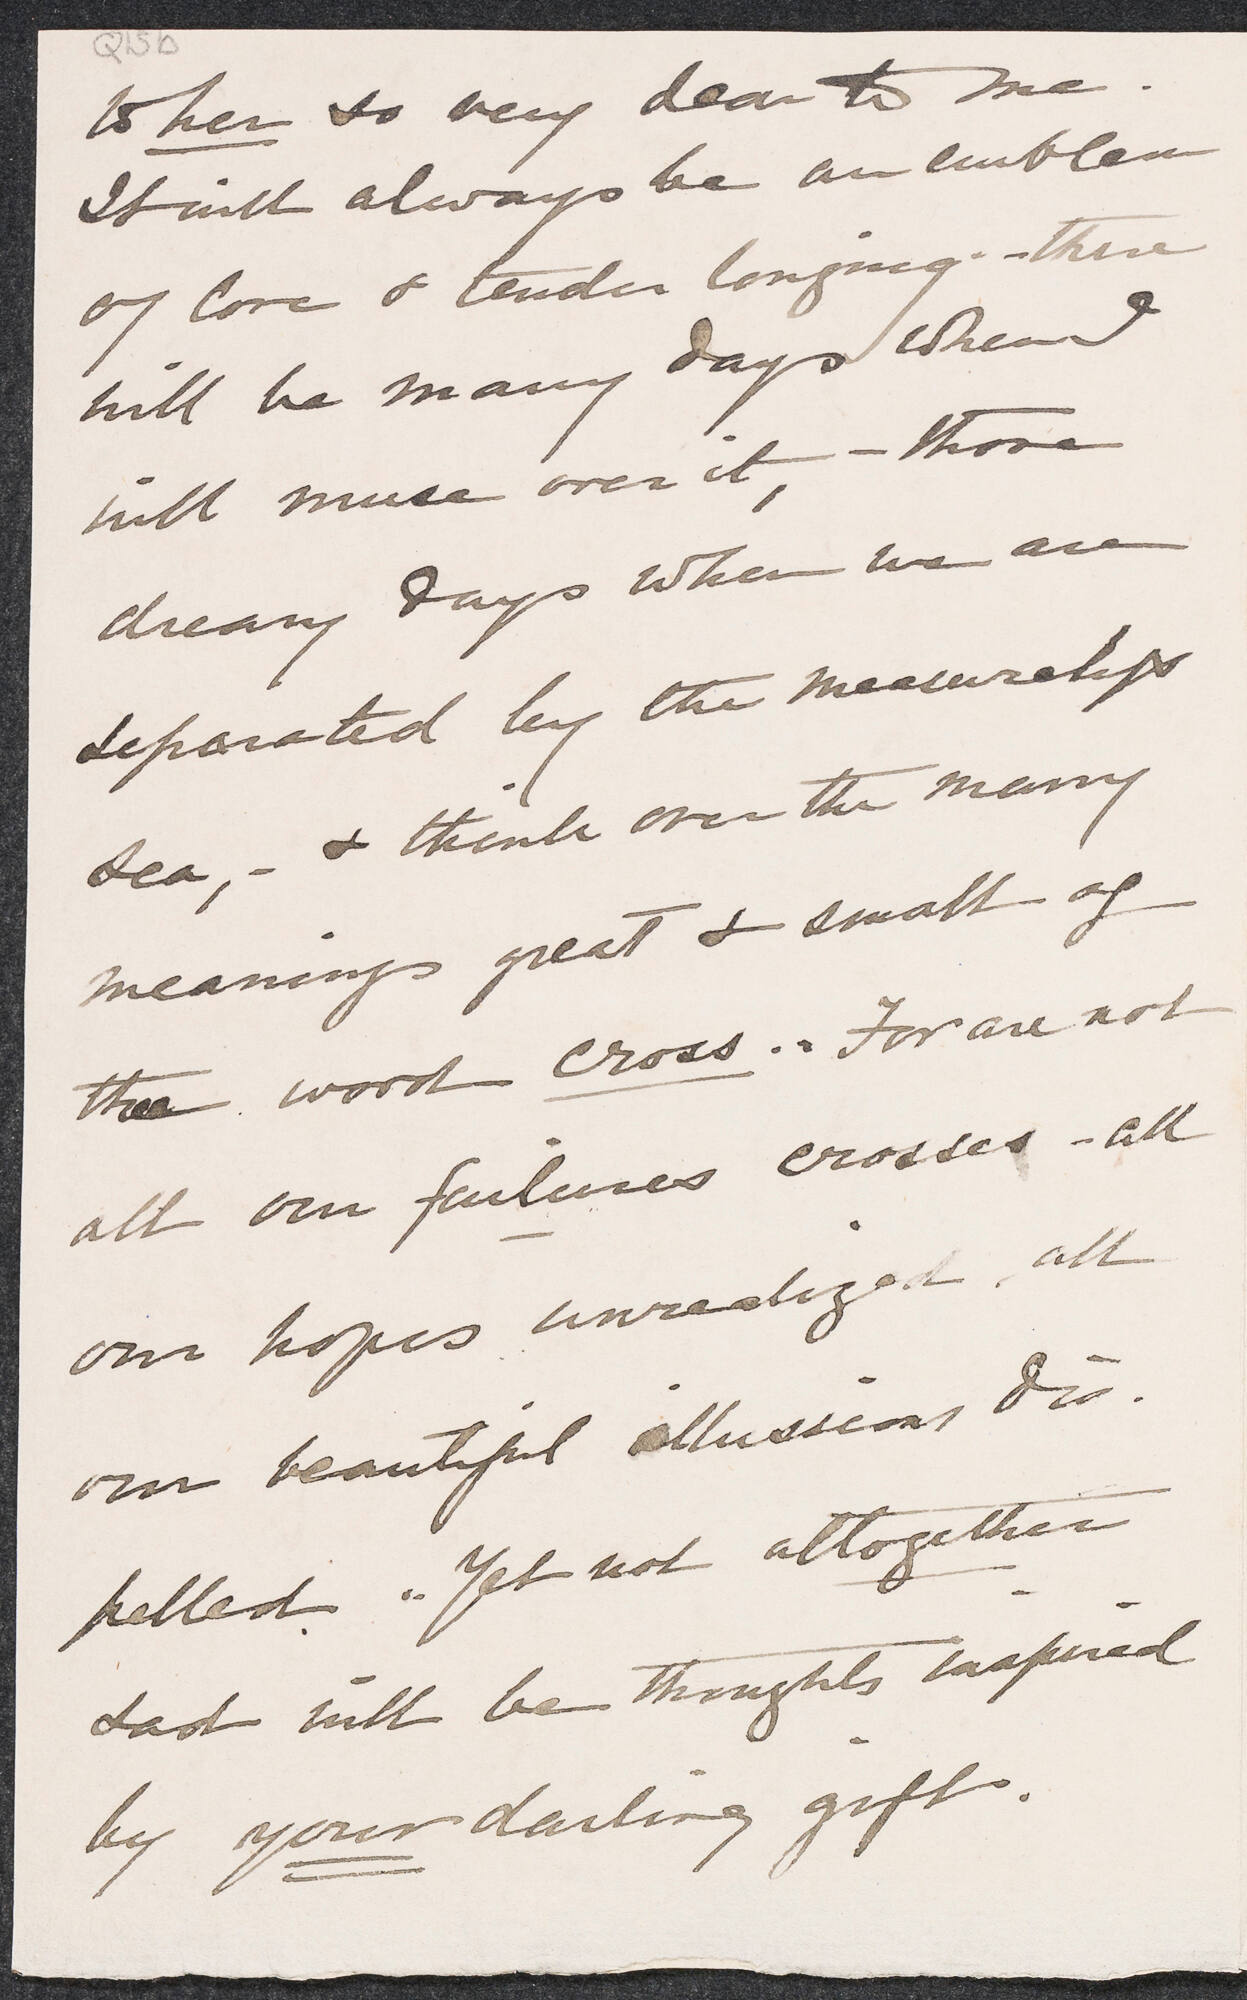 Q15b
to her so very dear to me.
It will always be an emblem
of love & tender longing - - there
will be many days when I
will muse over it, - those
dreary days when we are
separated by the measureless
sea, - & think over the many
meanings great & small of
the word cross. - For are not
all our failures crosses - all
our hopes unrealized, all
our beautiful illusions dis-
pelled. - Yet not altogether
sad will be thoughts inspired
by your darling gift.